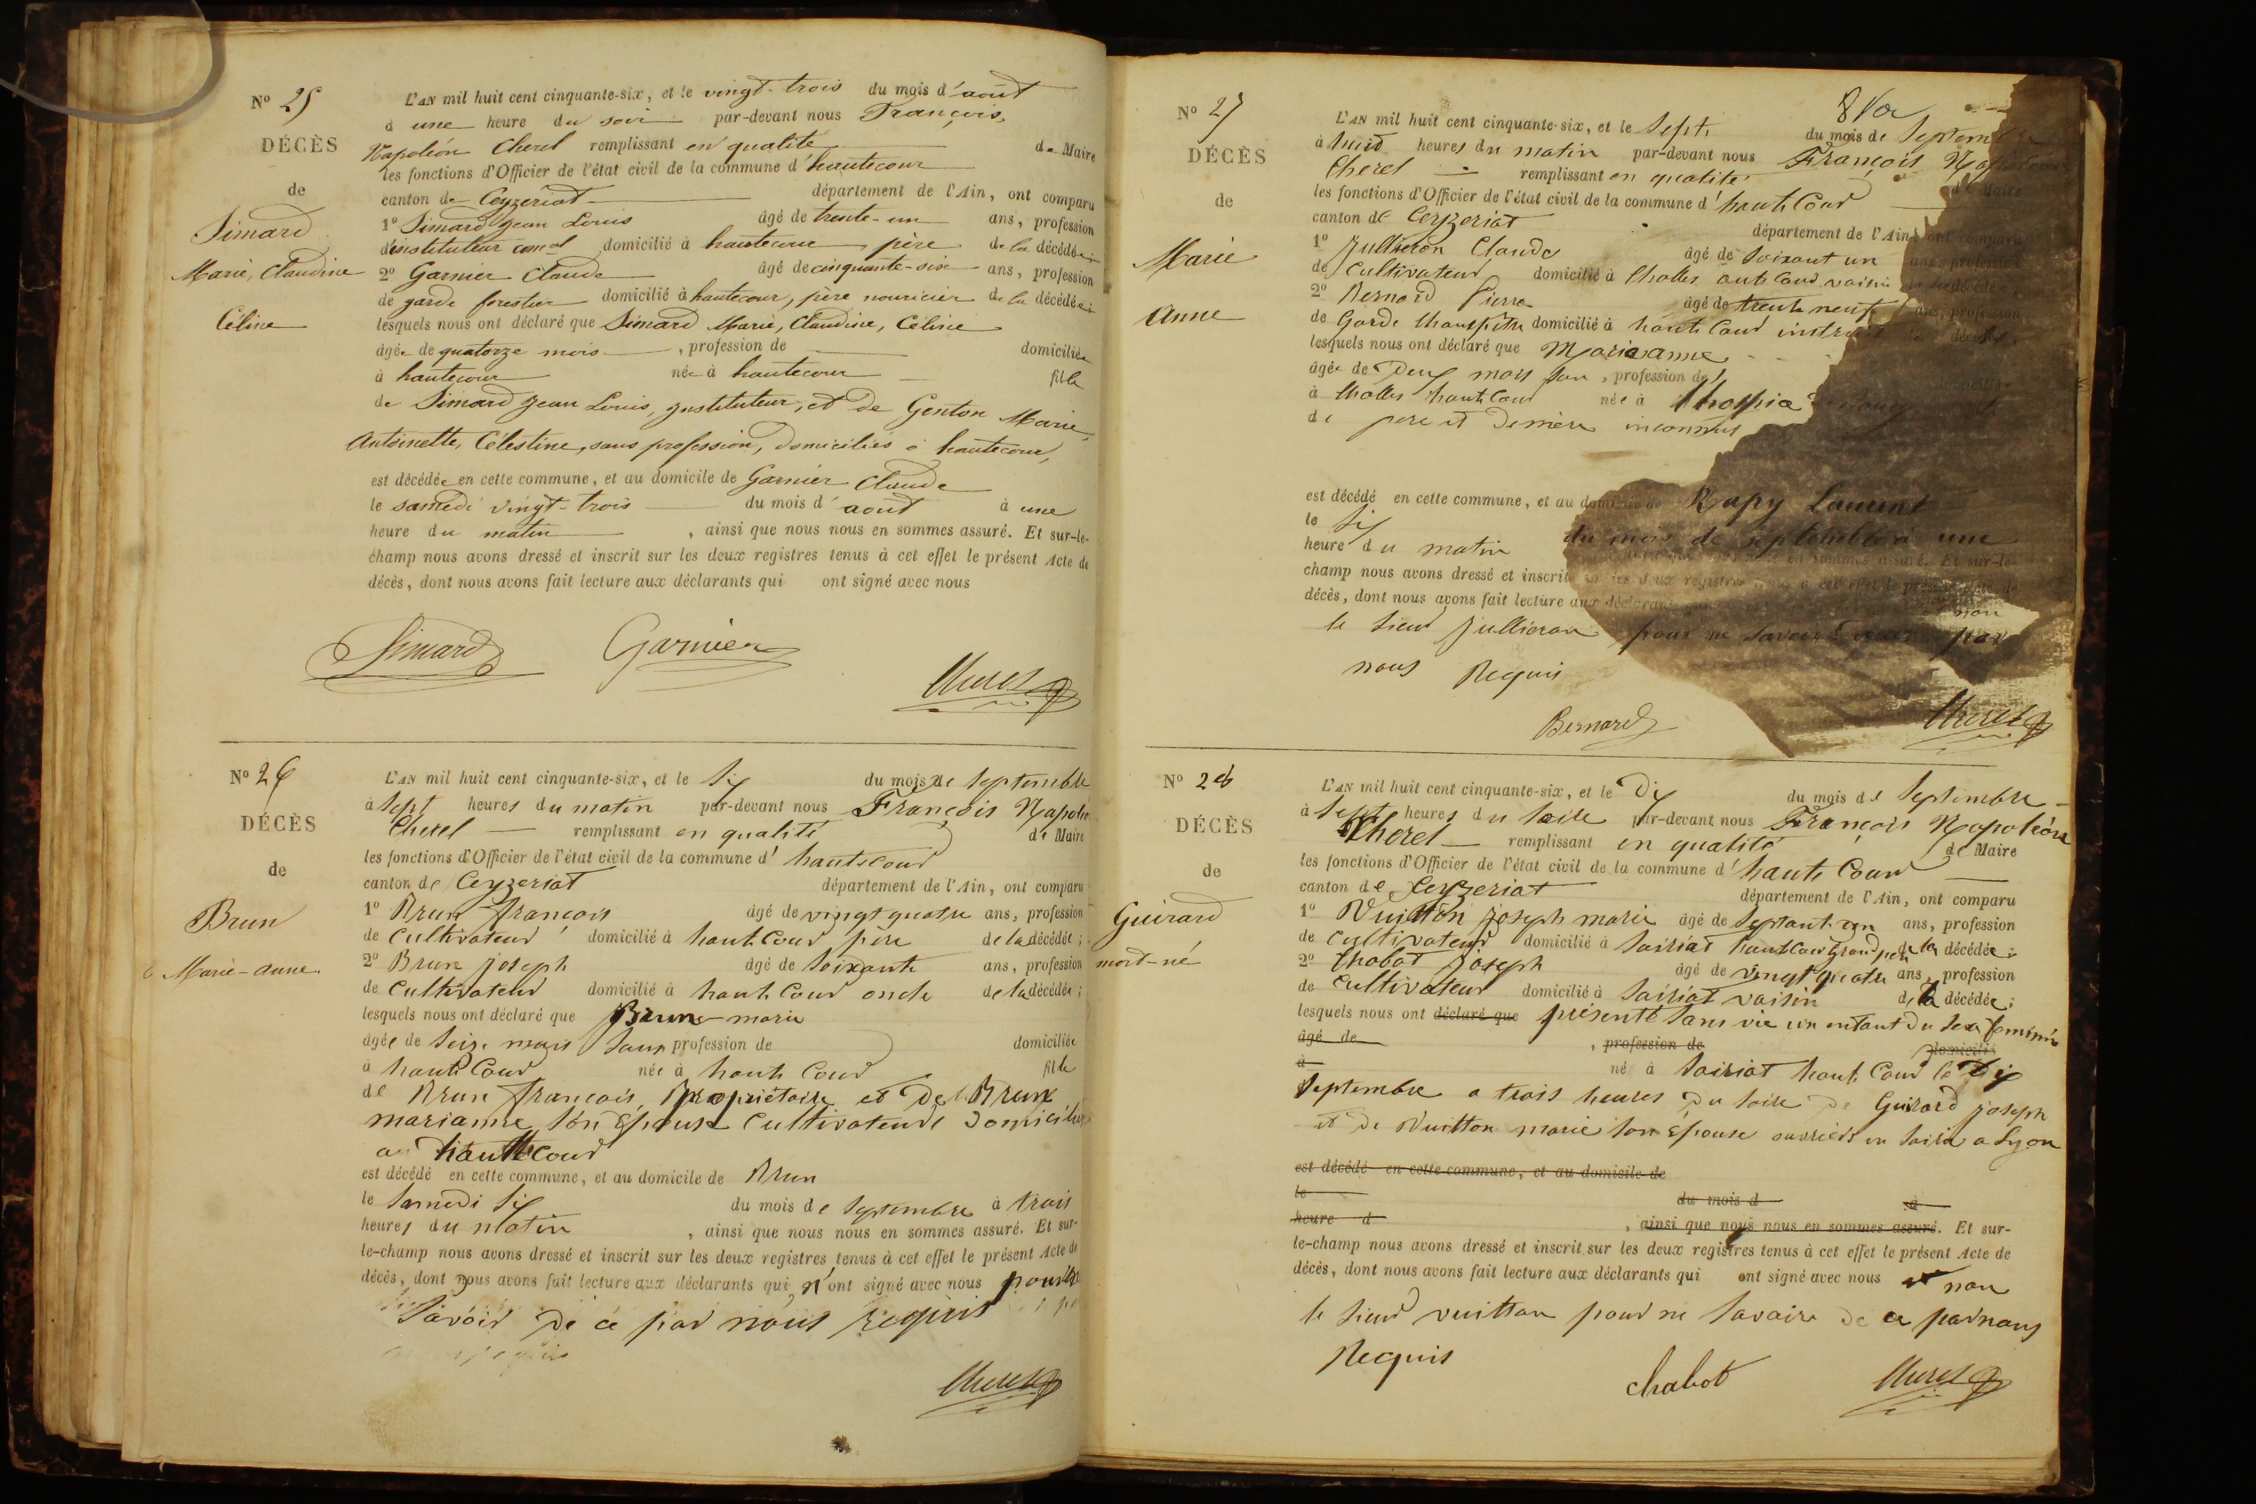 N° 25
DÉCÈS
de
Simard
Marie, Claudine
Céline
L'AN mil huit cent cinquante-six, et le vingt-trois du mois d'août
à une heure du soir par-devant nous François,
Napoléon Cherel remplissant en qualité de Maire
les fonctions d'Officier de l'état civil de la commune d'hautecour
canton de Ceyzeriat département de l'Ain, ont comparu
1° Simard Jean Louis âgé de trente-un ans, profession
d'instituteur comal domicilié à hautecour père de la décédée;
2° Garnier Claude âgé de cinquante-six ans, profession
de garde forestier domicilié à hautecour, père nouricier de la décédée;
lesquels nous ont déclaré que Simard Marie, Claudine, Céline
âgée de quatorze mois, profession de domiciliée
à hautecour née à hautecour fille
de Simard Jean Louis, instituteur, et de Genton Marie,
Antoinette, Célestine, sans profession, domiciliés à hautecour,
est décédée en cette commune, et au domicile de Garnier Claude
le samedi vingt-trois du mois d'août à une
heure du matin, ainsi que nous nous en sommes assuré. Et sur-le-
champ nous avons dressé et inscrit sur les deux registres tenus à cet effet le présent Acte de
décès, dont nous avons fait lecture aux déclarants qui ont signé avec nous
Simard Garnier
Cherel
N° 26
DÉCÈS
de
Brun
Marie-anne
L'AN mil huit cent cinquante-six, et le Six du mois de Septembre
à Sept heures du matin par-devant nous François Napoléon
Cherel remplissant en qualité de Maire
les fonctions d'Officier de l'état civil de la commune d'hautecour
canton de Ceyzeriat département de l'Ain, ont comparu
1° Brun françois âgé de vingt quatre ans, profession
de Cultivateur domicilié à haute Cour père de la décédée;
2° Brun joseph âgé de Soixante ans, profession
de Cultivateur domicilié à haute Cour oncle de la décédée;
lesquels nous ont déclaré que Brun-marie
âgée de Seize mois Sans profession de domiciliée
à haute Cour née à haute Cour fille
de Brun françois Propriétaire et De Brun
marianne Son Epouse Cultivateurs Domiciliés
a hautte Cour
est décédé en cette commune, et au domicile de Brun
le Samedi Six du mois de Septembre à trois
heures du matin, ainsi que nous nous en sommes assuré. Et sur-
le-champ nous avons dressé et inscrit sur les deux registres tenus à cet effet le présent Acte de
décès, dont nous avons fait lecture aux déclarants qui n'ont signé avec nous pour ne
Savoir De ce par nous requis
Cherel
N° 27
DÉCÈS
de
Marie
anne
L'AN mil huit cent cinquante-six, et le Sept du mois de Septembre
à huit heures du matin par-devant nous François Napoléon
Cherel remplissant en qualité de Maire
les fonctions d'Officier de l'état civil de la commune d'haute Cour
canton de Ceyzeriat département de l'Ain, ont comparu
1° Jullieron Claude âgé de Soixant un ans, profession
de Cultivateur domicilié à Cholles aute Cour voisin
2° Bernard Pierre âgé de trente neuf ans, profession
de Garde Champêtre domicilié à haute Cour
lesquels nous ont déclaré que Marieanne
âgée de Deux mois San, profession de
à Cholles haute Cour née à l'hospice
de pere et Demère inconnus
est décédé en cette commune, et au domicile de Rapy Laurent
le Six du mois de septembre à une
heure du matin en sommes assuré. Et sur-le-
champ nous avons dressé et inscrit sur les deux registres tenus à cet effet le présent Acte de
décès, dont nous avons fait lecture aux déclarants non
le Sieur Jullieron pour ne savoir par
nous Requis
Bernard Cherel
N° 28
DÉCÈS
de
Guirard
mort-né
L'AN mil huit cent cinquante-six, et le Dix du mois de Septembre
à Sept heures du Soire par-devant nous François Napoléon
Cherel remplissant en qualité de Maire
les fonctions d'Officier de l'état civil de la commune d'haute Cour
canton de Ceyzeriat département de l'Ain, ont comparu
1° Vuitton joseph marie âgé de Septant-un ans, profession
de Cultivateur domicilié à Soiriat haute Cour Grand pere de la décédée;
2° Chabot Joseph âgé de vingt quatre ans, profession
de Cultivateur domicilié à Soiriat voisin de la décédée;
lesquels nous ont déclaré que présenté Sans vie un enfant Du Sexe feminin
âgé de, profession de domicilié
à né à Soiriat haute Cour le Dix
Septembre a trois heures Du Soire De Guirard joseph
et De Vuitton marie Son Epouse ouvriers en Soire a Lyon
est décédé en cette commune, et au domicile de
le du mois d à
heure d, ainsi que nous nous en sommes assuré. Et sur-
le-champ nous avons dressé et inscrit sur les deux registres tenus à cet effet le présent Acte de
décès, dont nous avons fait lecture aux déclarants qui ont signé avec nous et non
le Sieur vuitton pour ne Savoire De ce par nous
Requis
Chabot Cherel